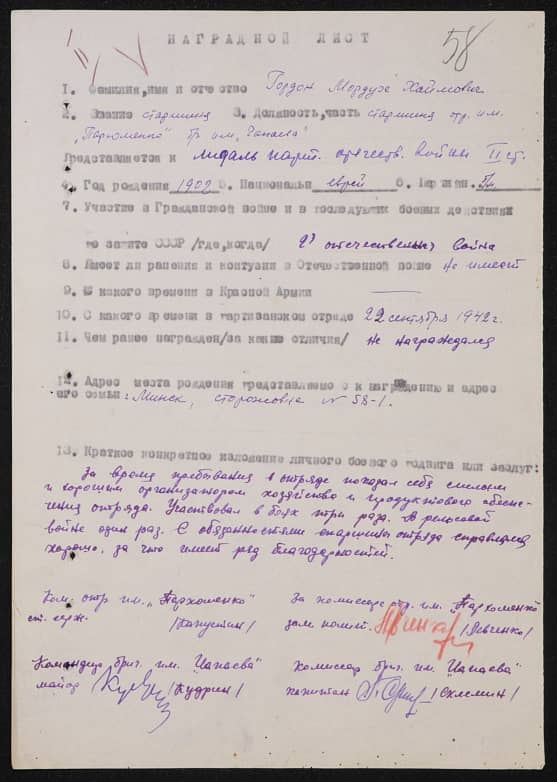 58
НАГРАДНОЙ ЛИСТ
1. Фамилия, имя и отчество Гордон Мордух Хаймович
2. Звание старшина 3. Должность, часть старшина отр. им.
"Пархоменко" бр им. "Чапаева"
Представляется к медаль парт. отечеств. войны II ст.
4. Год рождения 1902 5. Националья еврей 6. Партийн.
7. Участие в Гражданской войне и в последующих боевых действиях
по защите СССР /где, когда/ отечественная война
8. Имеет ли ранения и контузии в Отечественной войне не имеет
9. С какого времени в Красной Армии ——
10. С какого времени в партизанском отряде 22 сентября 1942 г.
11. Чем ранее награжден /за какие отличия/ не награждался
12. Адрес места рождения представляемого к награждению и адрес
его семьи: Минск, сторожовка № 58-1.
13. Краткое конкретное изложение личного боевого подвига или заслуг:
За время пребывания в отряде показал себя смелым
и хорошим организатором хозяйства и продуктового обеспе-
чения отряда. Участвовал в боях три раза. В рельсовой
войне один раз. С обязанностями старшины отряда справлялся
хорошо, за что имеет ряд благодарностей.
Ком. отр им. "Пархоменко" За комиссара отр. им. "Пархоменко"
/Капустин/ зам комис. /Левченко/
Командир бриг. им. "Чапаева" комиссар бриг. им "Чапаева"
майор /Кудрин/ капитан